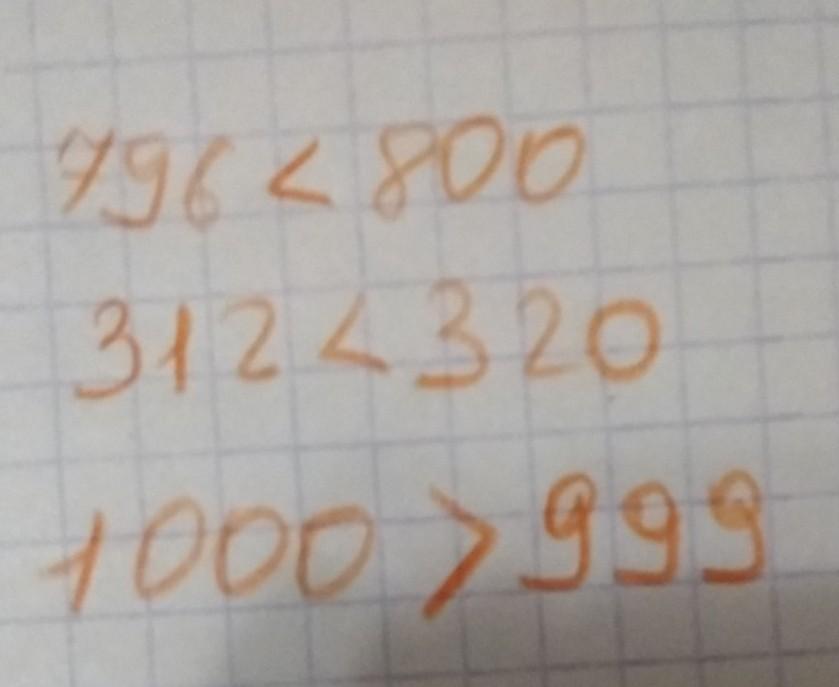 796 < 800
312 < 320
1000 > 999